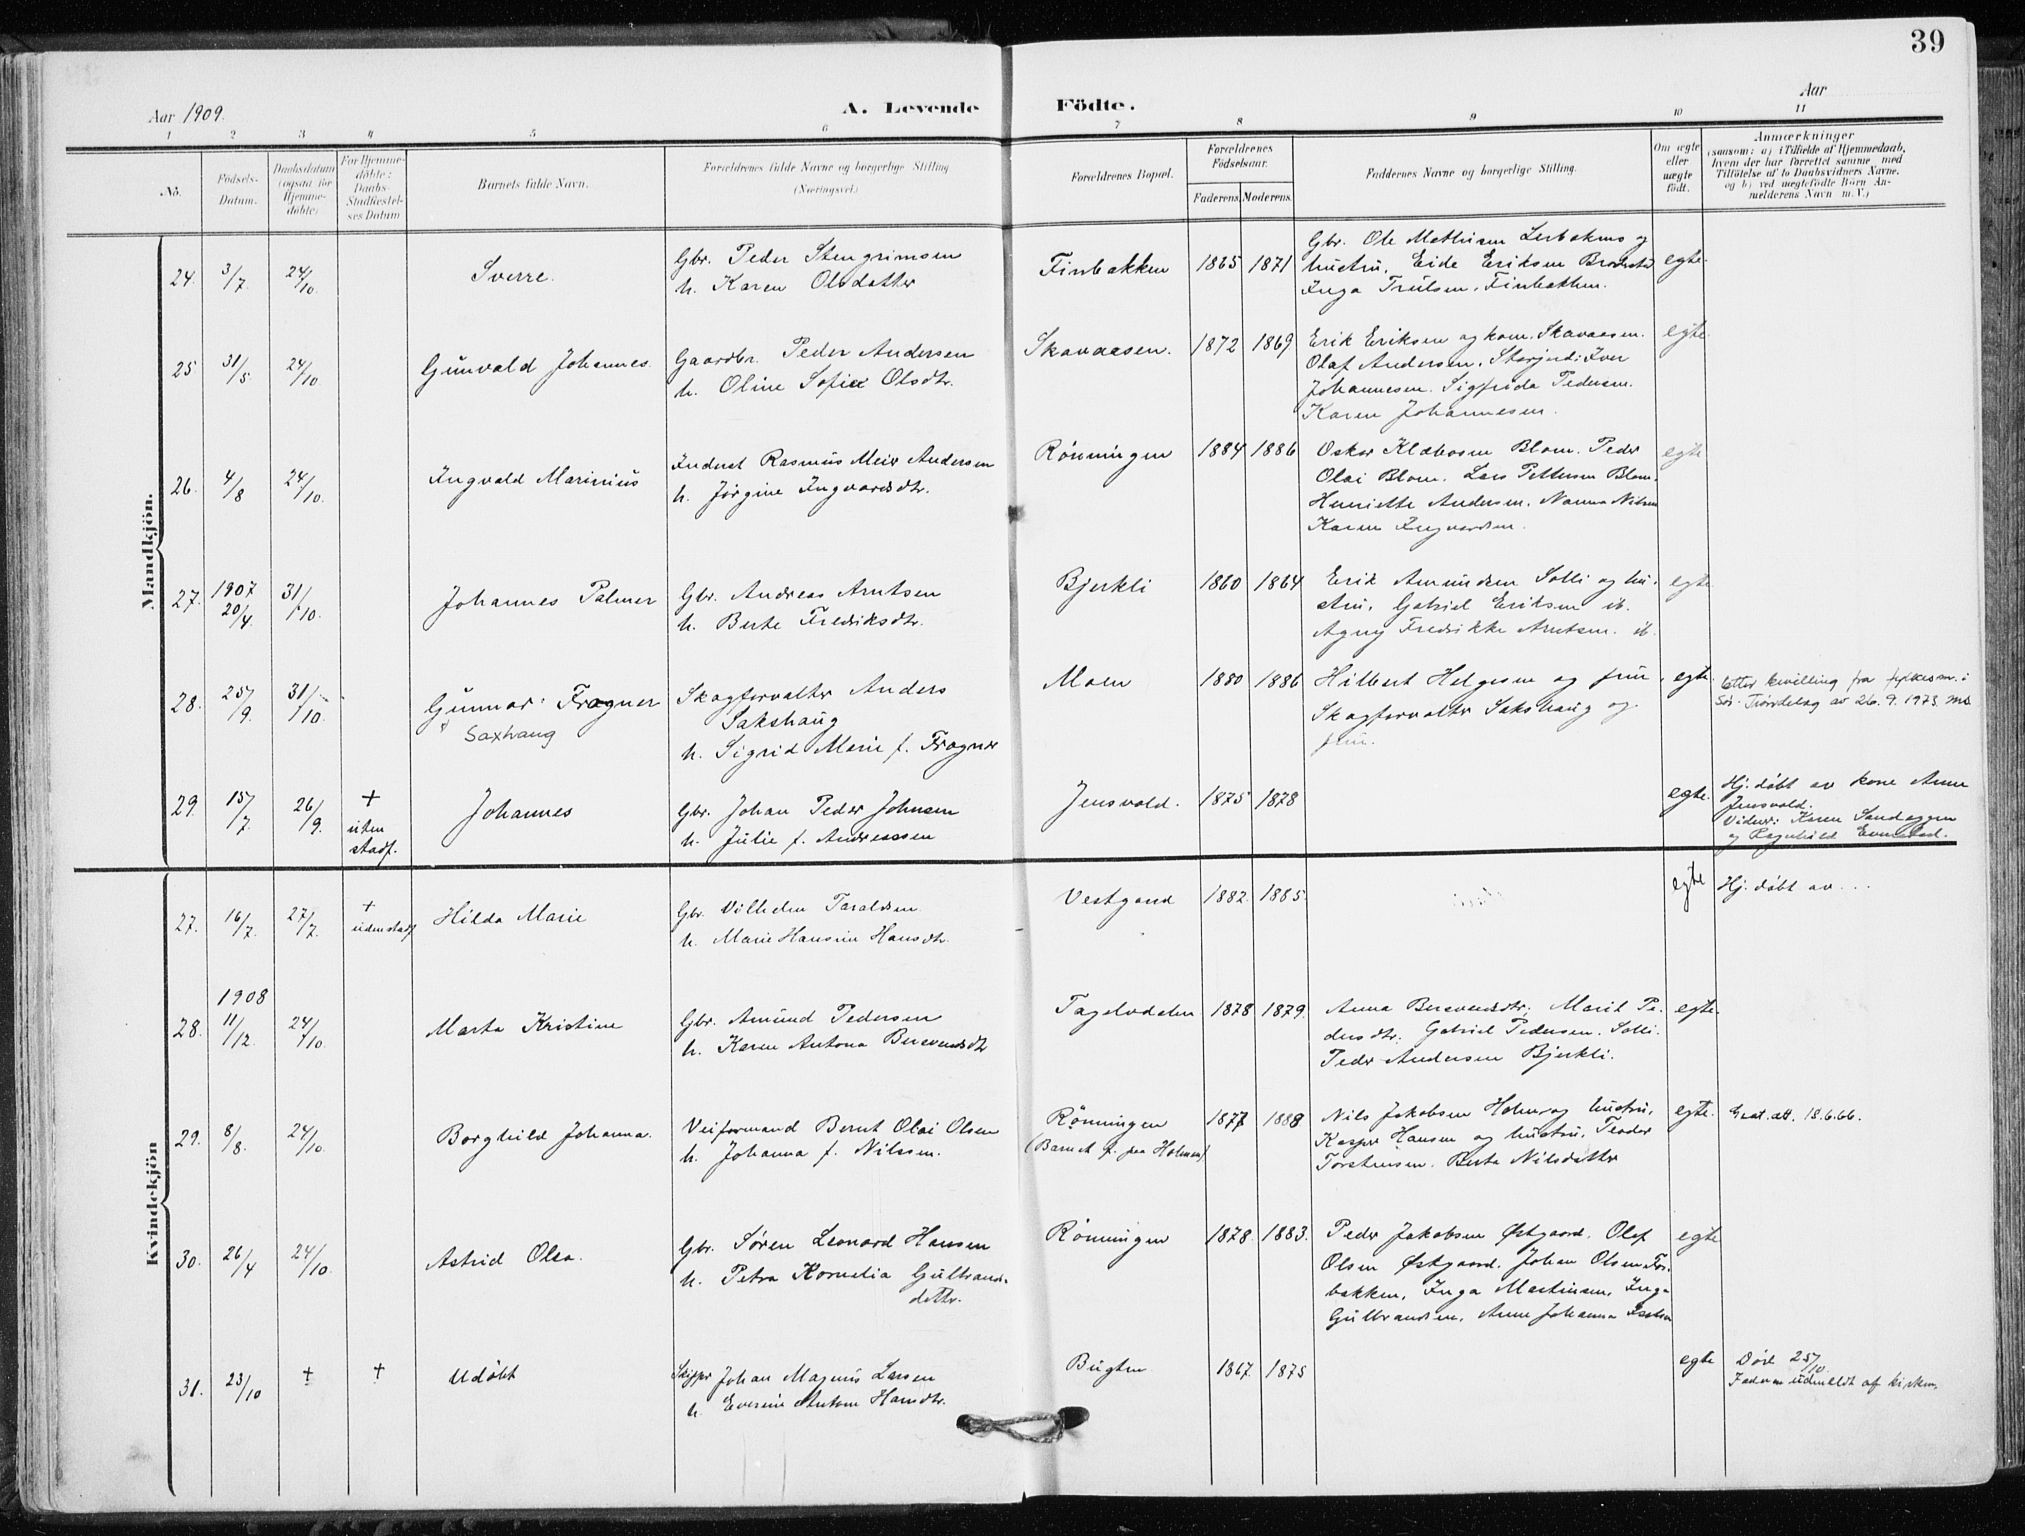 39
Aar 1909.
A. Levende Födte.
Aar
1 2 3 4 5 6 7 8 9 10 11
No.
Födsels-Datum.
Daabsdatum (ogsaa for Hjemme-döbte)
For Hjemme-döbte: Daabs-Stadfæstel-ses Datum
Barnets fulde Navn.
Forældrenes fulde Navne og borgerlige Stilling (Næringsvei.)
Forældrenes Bopæl.
Forældrenes Födselsaar.
Faderens. Moderens.
Faddernes Navne og borgerlige Stilling.
Om ægte eller uægte födt.
Anmærkninger
(saasom: a) i Tilfælde af Hjemmedaab,
hvem der har forrettet samme, med
Tilföielse af to Daabsvidners Navne,
og b) ved uægtefödte Börn An-
melderens Navn m. V.)
Mandkjön.
24. 3/7. 24/10. Sverre. Gbr. Peder Stengrimsen
h. Karen Olsdatter
Finbakken 1865 1871
Gbr. Ole Mathisen Lerbakmo og
hustru, Eide Eriksen
Inga Trulsen, Finbakken.
egte.
25 31/5. 24/10. Gunvald Johannes. Gaardbr. Peder Andersen
h. Oline Sofie Olsdtr.
Skavaasen. 1872 1869
Erik Eriksen og kone, Skavaasen.
Olaf Andersen, Iver
Johannesen. Sigfrida Pedersen.
Karen Johannesen.
egte.
26. 4/8 24/10. Ingvald Marinius Inderst Rasmus Meier Andersen
h. Jørgine Ingvardsdtr.
Rönningen 1884 1886
Oskar Klæbosen Blom. Peder
Olai Blom. Lars Pettersen Blom.
Henriette Andersen, Nanna Nilsen
Karen Ingvardsen.
egte
27. 1907 20/4. 31/10. Johannes Palmer Gbr. Andreas Arntsen
h. Berte Fredriksdtr.
Bjerkli 1860 1864
Erik Amundsen Solli og hu-
stru, Gabriel Eriksen ib.
Agny Fredrikke Arntsen. ib.
egte.
28. 25/9. 31/10. Gunnar Fragner
Saxhaug
Skogforvalter Anders
Sakshaug
h. Sigrid Marie f. Fragner
Moen 1880 1886
Hilbert Helgesen og frue,
Skogforvalter Sakshaug og
frue.
egte.
Etter bevilling fra fylkesm. i
Sør-Trøndelag av 26.9.1973. ms
29. 15/7. 26/9. +
uten
stadf.
Johannes Gbr. Johan Peder Johnsen
h. Julie f. Andreassen
Jensvold. 1875 1878
egte.
Hj. döbt av kone Anne
Jensvold.
Vidner: Karen Sandeggen
og Ragnhild Evenstad.
Kvindekjön
27. 16/7. 27/7. +
uden stadf.
Hilda Marie Gbr. Vilhelm Taraldsen
h. Marie Hansine Hansdtr.
Vestgaard 1882. 1885.
egte
Hj. döbt av ...
28. 1908 11/12. 24/10. Marta Kristine Gbr. Amund Pedersen
h. Karen Antona Bersvendsdtr
Fagelvdalen 1878 1879.
Anna Bersvendsdtr. Marit Pe-
dersdtr. Gabriel Pedersen. Solli.
Peder Andersen Bjerkli.
egte.
29. 8/8. 24/10. Borghild Johanna. Veiformand Bernt Olai Olsen
h. Johanna f. Nilssen.
Rönningen
(Barnet f. paa Holmen)
1877 1888
Nils Jakobsen Holmen og hustru,
Kasper Hansen og hustru, Teodor
Torstensen. Berta Nilsdatter
egte.
att. 18.6.66.
30. 26/4 24/10. Astrid Olea. Gbr. Sören Leonard Hansen
h. Petra Kornelia Gulbrands-
datter.
Rönningen 1878. 1883.
Peder Jakobsen Østgaard. Olaf
Olsen Østgaard. Johan Olsen Fin-
bakken, Inga Martinsen, Inga
Gulbrandsen, Anne Johanna
egte
31. 23/10 + + Udöbt Skipper Johan Magnus Larsen
h. Everine Antone Hansdtr.
Bugten 1867. 1875
egte
Död 25/10.
Faderen udmeldt af kirken.